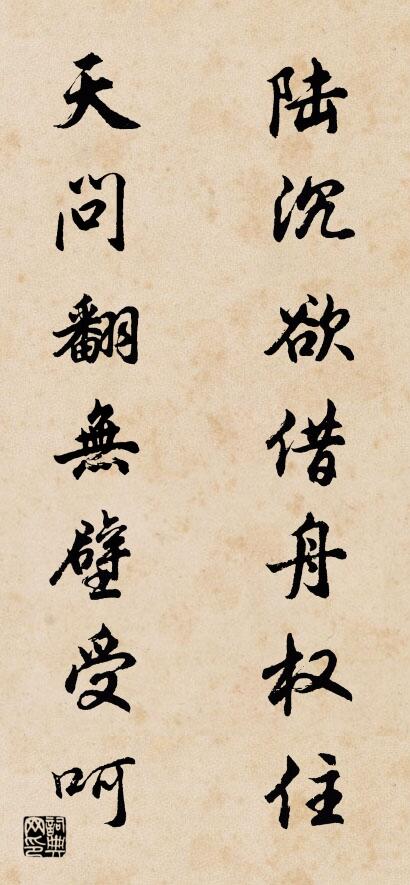 陆沉欲借舟权住
天问翻無壁受呵
詞典网印